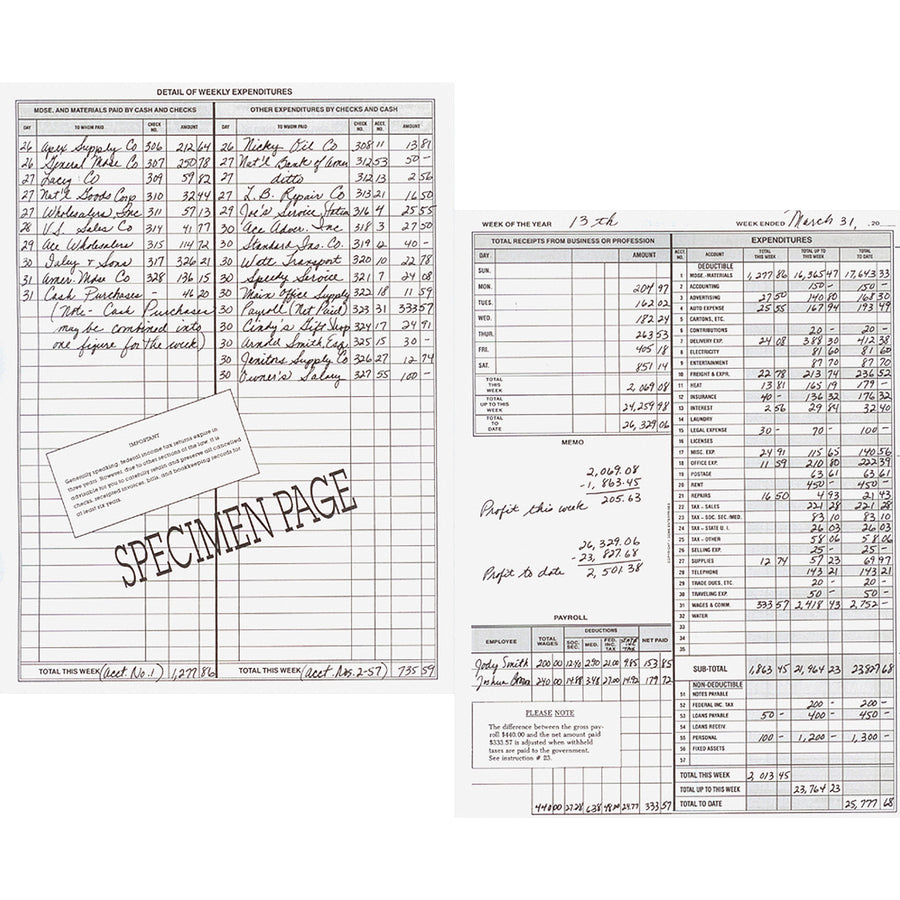 DETAIL OF WEEKLY EXPENDITURES
MDSE. AND MATERIALS PAID BY CASH AND CHECKS
DAY TO WHOM PAID CHECK NO. AMOUNT
26 Apex Supply Co 306 212 64
26 General Mdse Co 307 250 78
27 Lacey Co 309 59 82
27 Nat'l Goods Corp 310 32 44
27 Wholesalers, Inc 311 57 13
28 V.S. Sales Co 314 41 77
29 Ace Wholesalers 315 114 72
30 Daley & Sons 317 326 21
31 Amer. Mdse Co 328 136 15
31 Cash Purchases - 46 20
(Note - Cash Purchases
may be combined into
one figure for the week)
TOTAL THIS WEEK (Acct. No. 1) 1,277 86
OTHER EXPENDITURES BY CHECKS AND CASH
DAY TO WHOM PAID CHECK NO. ACC. NO. AMOUNT
26 Nicky Oil Co 308 11 13 81
27 Nat'l Bank of Amer 312 53 50 -
27 ditto 312 13 2 56
27 L.B. Repair Co 313 21 16 50
29 Joe's Service Station 316 4 25 55
30 Ace Adver. Inc 318 3 27 50
30 Standard Ins. Co. 319 12 40 -
30 Watt Transport 320 10 22 78
30 Speedy Service 321 7 24 08
30 Main Office Supply 322 18 11 59
30 Payroll (Net Paid) 323 31 333 57
30 Cindy's Gift Shop 324 17 24 91
30 Arnold Smith Esq. 325 15 30 -
30 Janitors Supply Co 326 27 12 74
30 Owner's Salary 327 55 100 -
TOTAL THIS WEEK (Acct. Nos. 2-57) 735 59
IMPORTANT
Generally speaking, federal income tax returns expire in
three years. However, due to other sections of the law, it is
advisable for you to carefully retain and preserve all cancelled
checks, receipted invoices, bills, and bookkeeping records for
at least six years.
SPECIMEN PAGE
WEEK OF THE YEAR 13th WEEK ENDED March 31, 20
TOTAL RECEIPTS FROM BUSINESS OR PROFESSION
DAY AMOUNT
SUN.
MON. 204 97
TUES. 162 02
WED. 182 24
THUR. 263 53
FRI. 405 18
SAT. 851 14
TOTAL THIS WEEK 2,069 08
TOTAL UP TO THIS WEEK 24,259 98
TOTAL TO DATE 26,329 06
MEMO
2,069.08
-1,863.45
Profit this week 205.63
26,329.06
-23,827.68
Profit to date 2,501.38
PAYROLL
EMPLOYEE TOTAL WAGES DEDUCTIONS SOC. SEC. MED. FED. INC. TAX State Inc Tax NET PAID
Jody Smith 200 00 12 40 2 90 21 00 9 85 153 85
Joshua 240 00 14 88 3 48 27 00 14 92 179 72
PLEASE NOTE
The difference between the gross pay-
roll $440.00 and the net amount paid
$333.57 is adjusted when withheld
taxes are paid to the government.
See instruction # 23.
440 00 27 28 6 38 48 00 24 77 333 57
EXPENDITURES
ACCT. NO. ACCOUNT TOTAL THIS WEEK TOTAL UP TO THIS WEEK TOTAL TO DATE
DEDUCTIBLE
1 MDSE.-MATERIALS 1,277 86 16,365 47 17,643 33
2 ACCOUNTING 150 - 150 -
3 ADVERTISING 27 50 140 80 168 30
4 AUTO EXPENSE 25 55 167 94 193 49
5 CARTONS, ETC.
6 CONTRIBUTIONS 20 - 20 -
7 DELIVERY EXP. 24 08 388 30 412 38
8 ELECTRICITY 81 60 81 60
9 ENTERTAINMENT 87 70 87 70
10 FREIGHT & EXPR. 22 78 213 74 236 52
11 HEAT 13 81 165 19 179 -
12 INSURANCE 40 - 136 32 176 32
13 INTEREST 2 56 29 84 32 40
14 LAUNDRY
15 LEGAL EXPENSE 30 - 70 - 100 -
16 LICENSES
17 MISC. EXP. 24 91 115 65 140 56
18 OFFICE EXP. 11 59 210 80 222 39
19 POSTAGE 63 61 63 61
20 RENT 450 - 450 -
21 REPAIRS 16 50 4 93 21 43
22 TAX - SALES 221 28 221 28
23 TAX - SOC. SEC./MED. 83 10 83 10
24 TAX - STATE U. I. 26 03 26 03
25 TAX - OTHER 58 06 58 06
26 SELLING EXP. 25 - 25 -
27 SUPPLIES 12 74 57 23 69 97
28 TELEPHONE 143 21 143 21
29 TRADE DUES, ETC. 20 - 20 -
30 TRAVELING EXP. 50 - 50 -
31 WAGES & COMM. 333 57 2,418 43 2,752 -
32 WATER
33
34
35
SUB-TOTAL 1,863 45 21,964 23 23827 68
NON-DEDUCTIBLE
51 NOTES PAYABLE
52 FEDERAL INC. TAX 200 - 200 -
53 LOANS PAYABLE 50 - 400 - 450 -
54 LOANS RECEIV.
55 PERSONAL 100 - 1,200 - 1,300 -
56 FIXED ASSETS
57
TOTAL THIS WEEK 2,013 45
TOTAL UP TO THIS WEEK 23,764 23
TOTAL TO DATE 25,777 68